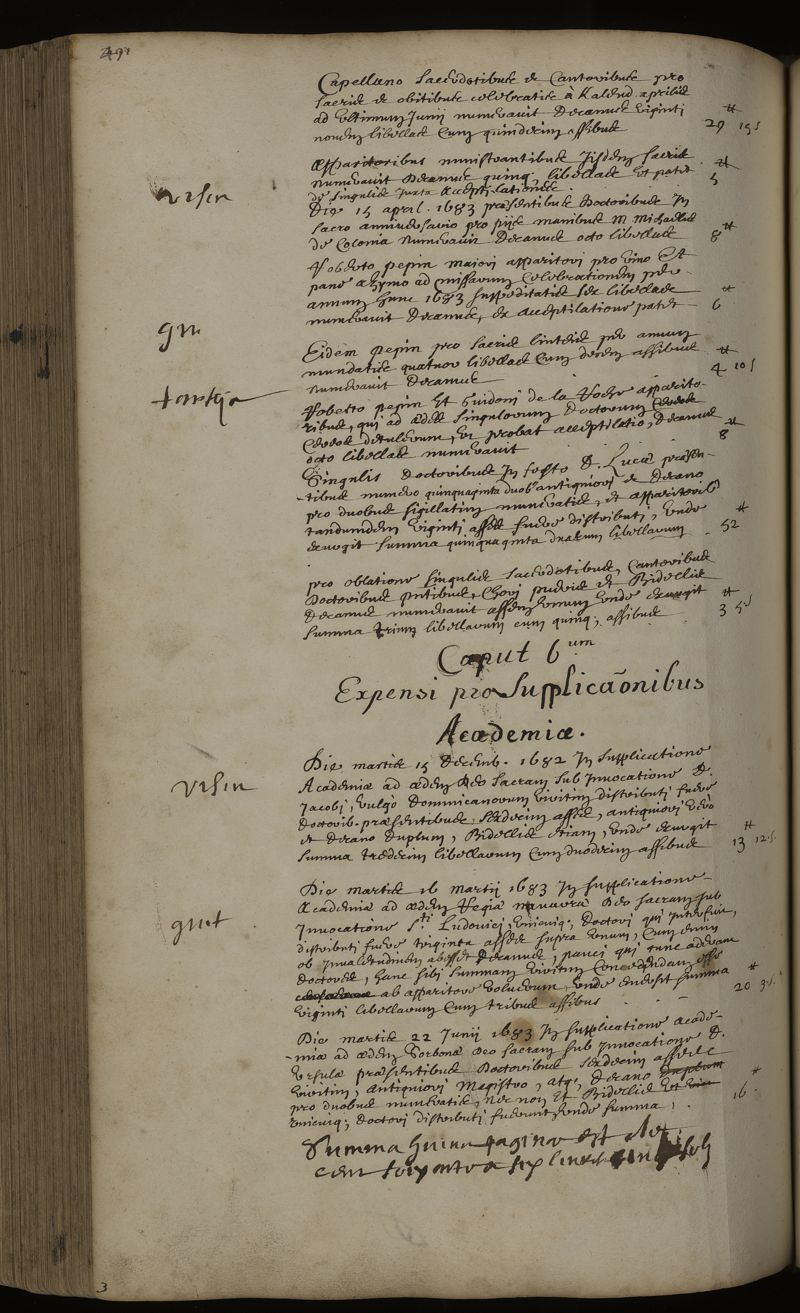 Capellano sacerdotibus et Cantoribus pro
sacris et obitibus celebratis à Kalend. aprilis
ad ultimum Junij numeravit Decanus viginti
novem libellas cum quindecim assibus 29 15 s
Apparitoribus ministrantibus ijsdem sacris
numeravit Decanus quinq; libellas ut patet 5
de singulis juxta acceptilationes.
Die 15 april. 1683 præsentibus Doctoribus in
sacro anniversario pro pijs manibus M Michaelis
de Colonia numeravit Decanus octo libellas 8
Roberto pepin maiori apparitori pro vino et
pane azymo ad missarum celebrationem per
annum hunc 1683 suppeditatis sex libellas
numeravit Decanus, ex acceptilatione patet 6
Eidem pepin pro sacris linteis per annum
mundatis quatuor libellas cum decem assibus
numeravit Decanus 4 10 s
Roberto pepin et Guidoni de la Roche apparito-
ribus, qui ad ædes singulorum Doctorum
detulerunt, ut probat acceptilatio, Decanus
octo libellas numeravit 8
Singulis Doctoribus in festo D. Lucæ præsen-
tibus numero quinquaginta duob. antiquiori et decano
pro duobus sigillatim numeratis, et apparitorib.
tandumdem viginti asses fuere distributi, unde
exurgit summa quinquaginta duarum libellarum 52
pro oblatione singulis sacerdotibus, Cantoribus
Doctoribus pntibus, chori pueris et Bidellis
Decanus numeravit assem unum unde exurgit
summa trium libellarum cum quinq; assibus 3 5 s
Caput 6um
Expensi pro Supplicaõnibus
Academiæ.
Die martis 15 Decemb. 1682 in supplicatione
Academiæ ad ædem Deo sacram sub invocatione D.
Jacobi, vulgo Dominicanorum viritim distributi fuere
Doctorib. præsentibus, sexdecim asses, antiquiori vero
et Decano duplum, Bidellis etiam, unde exurgit
summa tredecim libellarum cum duodecim assibus 13 12 s.
Die martis 16 martij 1683 in supplicatione
Academiæ ad ædem Regiæ navarræ Deo sacram sub
invocatione Sti Ludovici, unicuiq; Doctori qui interfuit,
distributi fuere triginta asses supra unum, cum enim
ob invaletudinem abesset Decanus, pauci qui tunc aderant
Doctores, hanc sibi summam viritim concedendam esse
ab apparitore voluerunt, unde emersit summa
viginti libellarum cum tribus assibus 20 3 s.
Die martis 22 Junij 1683 in supplicatione Acade-
miæ ad ædem Sorbonæ Deo sacram sub invocatione D.
Ursulæ præsentibus Doctoribus sexdecim asses
viritim, antiquiori Magistro, atq; Decano duplum
pro duobus numeratis, nec non et Bidellis
unicuiq; Doctori distributi fuerunt unde summa, 16
Summa huius paginæ est